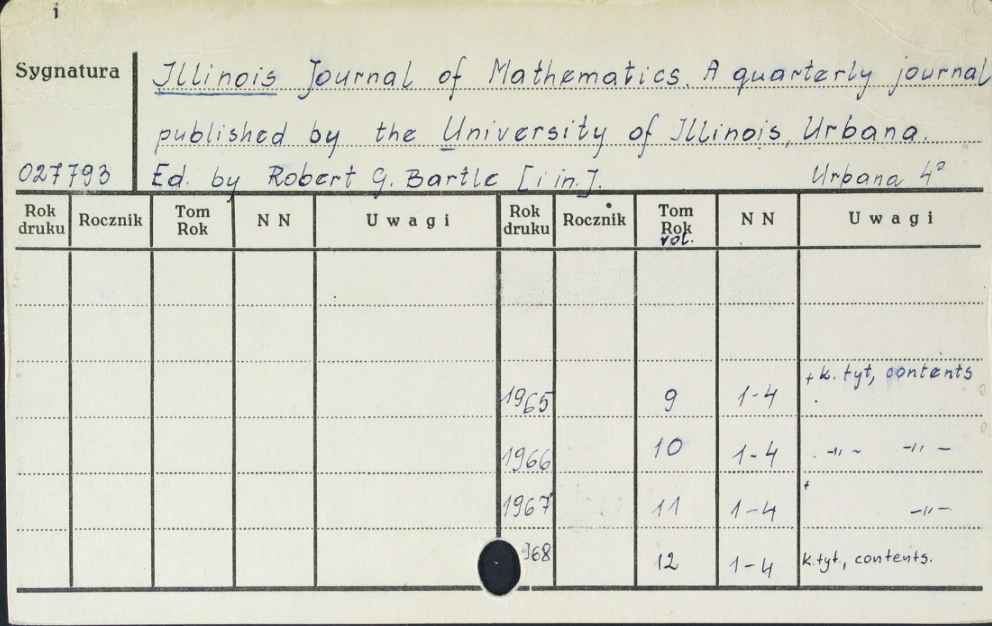 i
Sygnatura
Illinois Journal of Mathematics. A quarterly journal
published by the University of Illinois, Urbana.
027793 Ed. by Robert G. Bartle [i in.]. Urbana 4°
Rok druku Rocznik Tom Rok NN Uwagi Rok druku Rocznik Tom Rok vol. NN Uwagi
1965 9 1-4 + k. tyt, contents
1966 10 1-4 -"- -"-
1967 11 1-4 + -"-
968 12 1-4 k.tyt., contents.